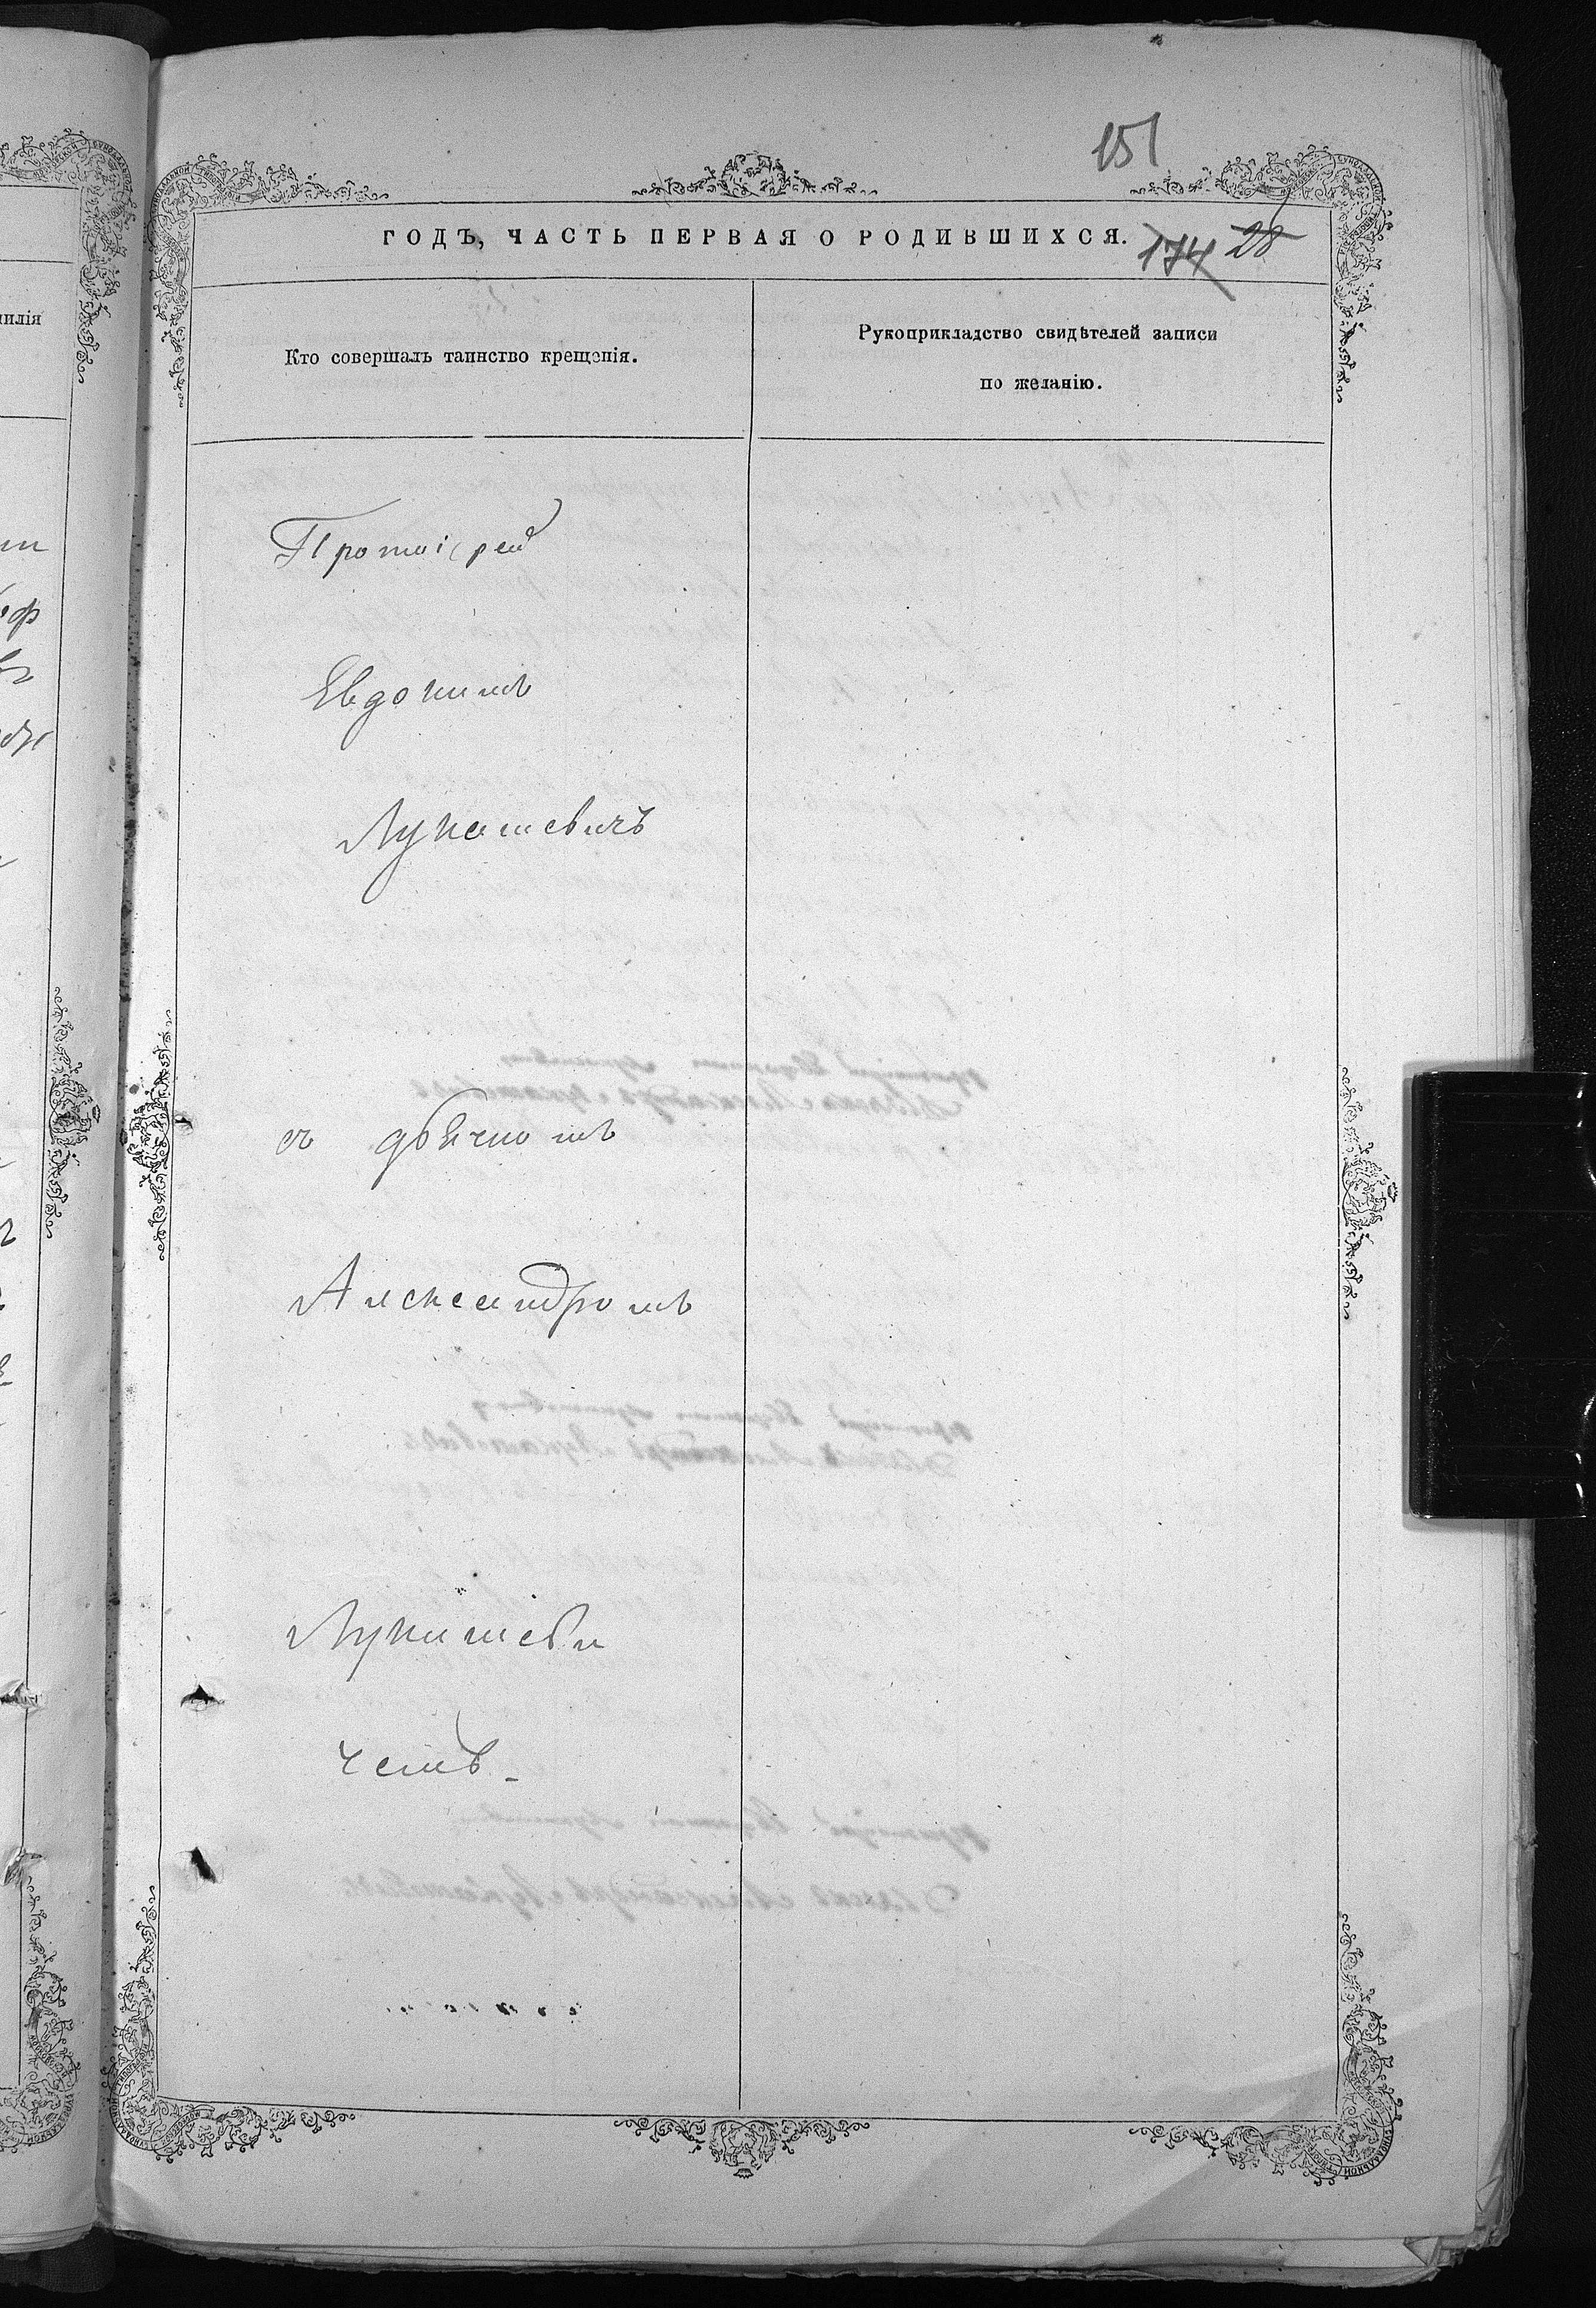 151
ГОДЪ, ЧАСТЬ ПЕРВАЯ О РОДИВШИХСЯ.
174 28
Кто совершалъ таинство крещенія.
Рукоприкладство свидѣтелей записи
по желанію.
Протоіерей
Евдокимъ
Лукашевичъ
съ дьячкомъ
Александромъ
Лукашеви
чемъ